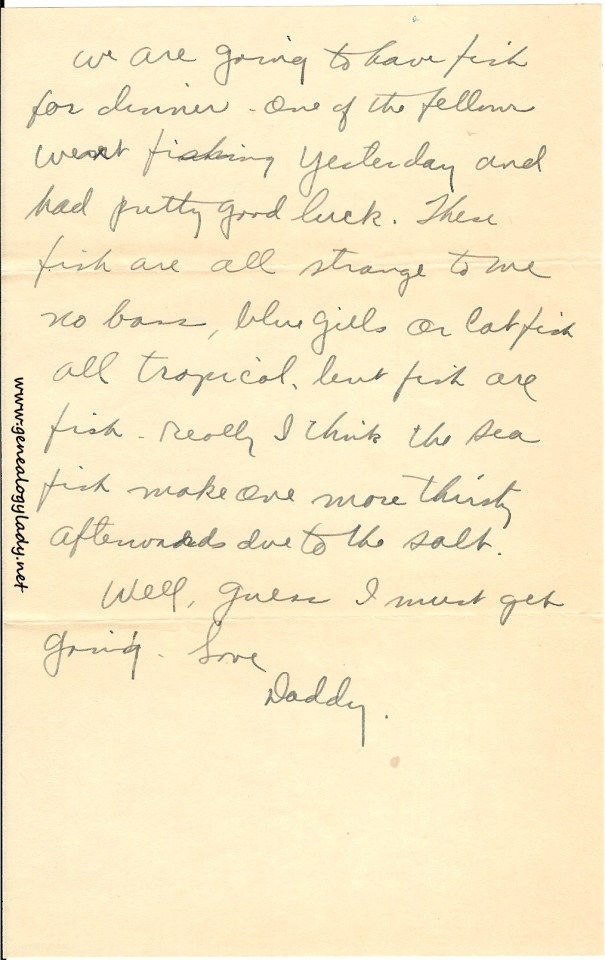 we are going to have fish
for dinner - One of the fellows
went fishing yesterday and
had pretty good luck. These
fish are all strange to me
no bass, blue gills or Catfish
all tropical. but fish are
fish - Really I think the sea
fish make one more thirsty
afterwards due to the salt.
Well, guess I must get
going. Love
Daddy.
www.genealogylady.net